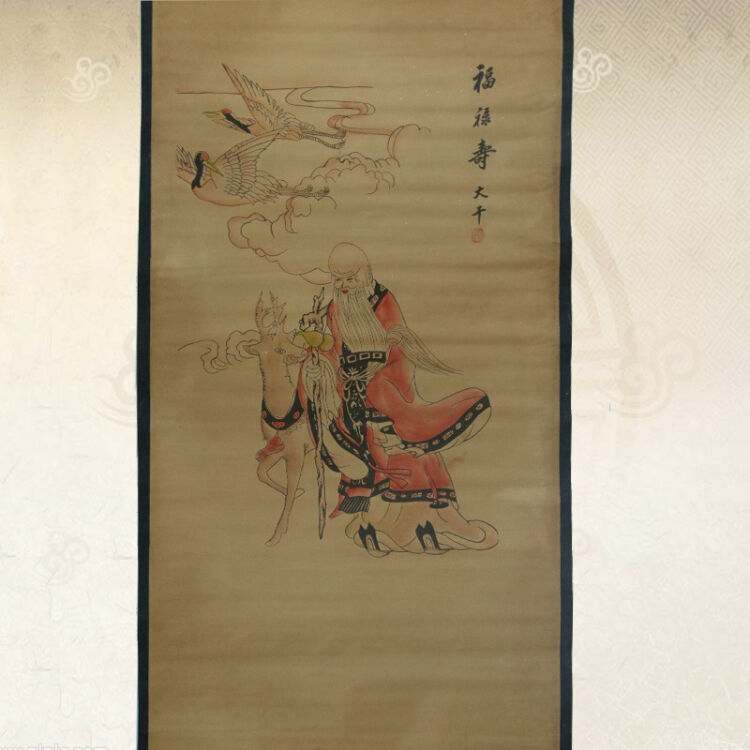 福禄壽
大千